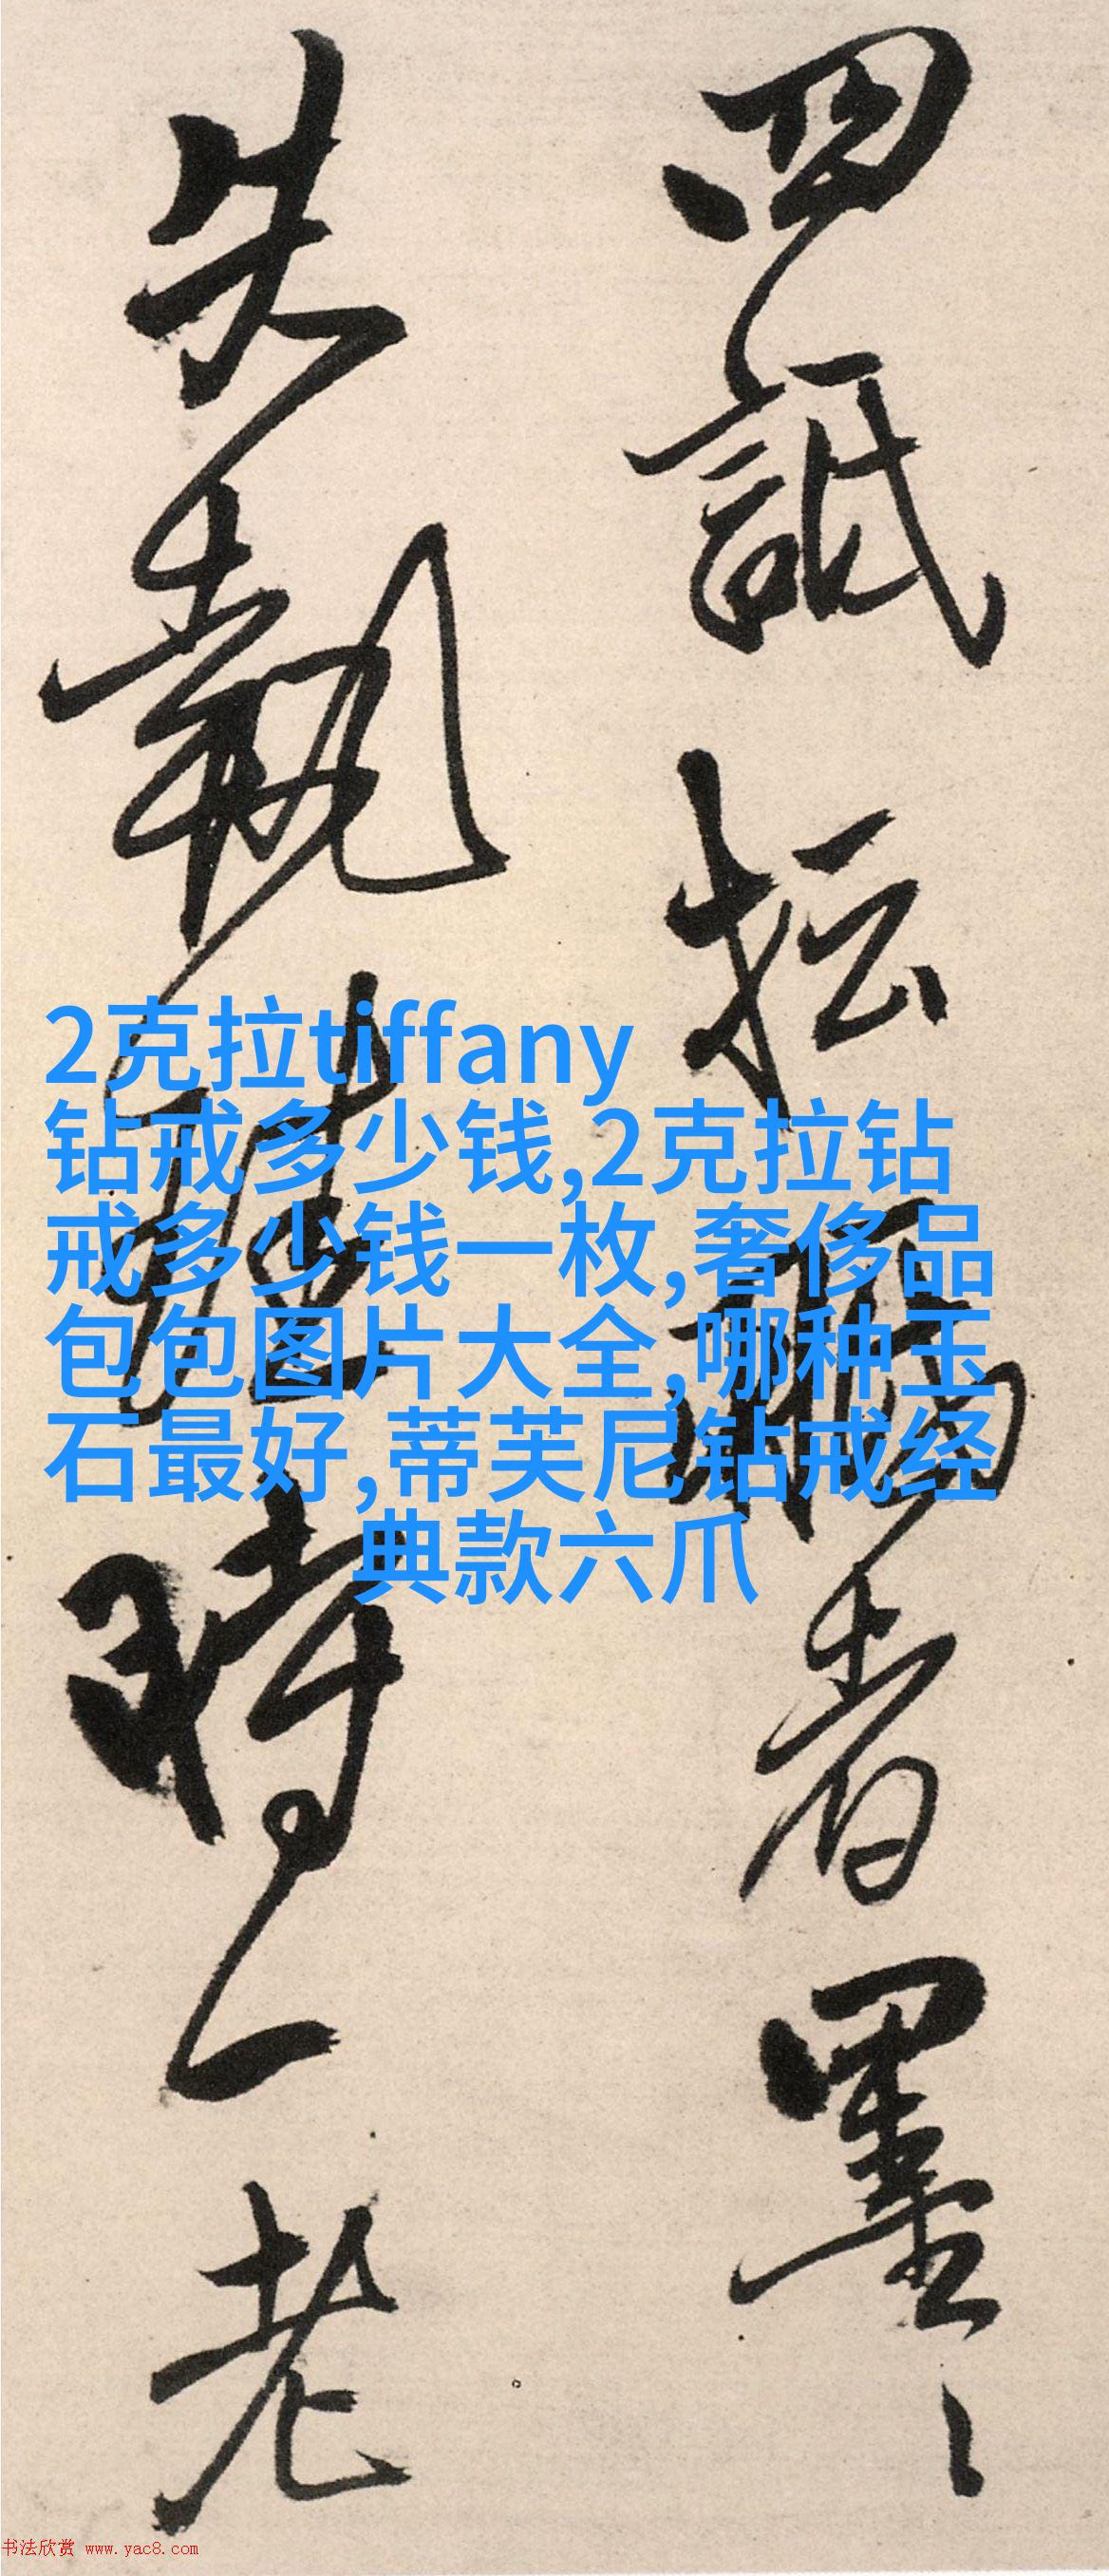 四詆坛
者墨
失執
時一老
2克拉tiffany
钻戒多少钱,2克拉钻
戒多少钱一枚,奢侈品
包包图片大全,哪种玉
石最好,蒂芙尼钻戒经
典款六爪
书法欣赏 www.yac8.com